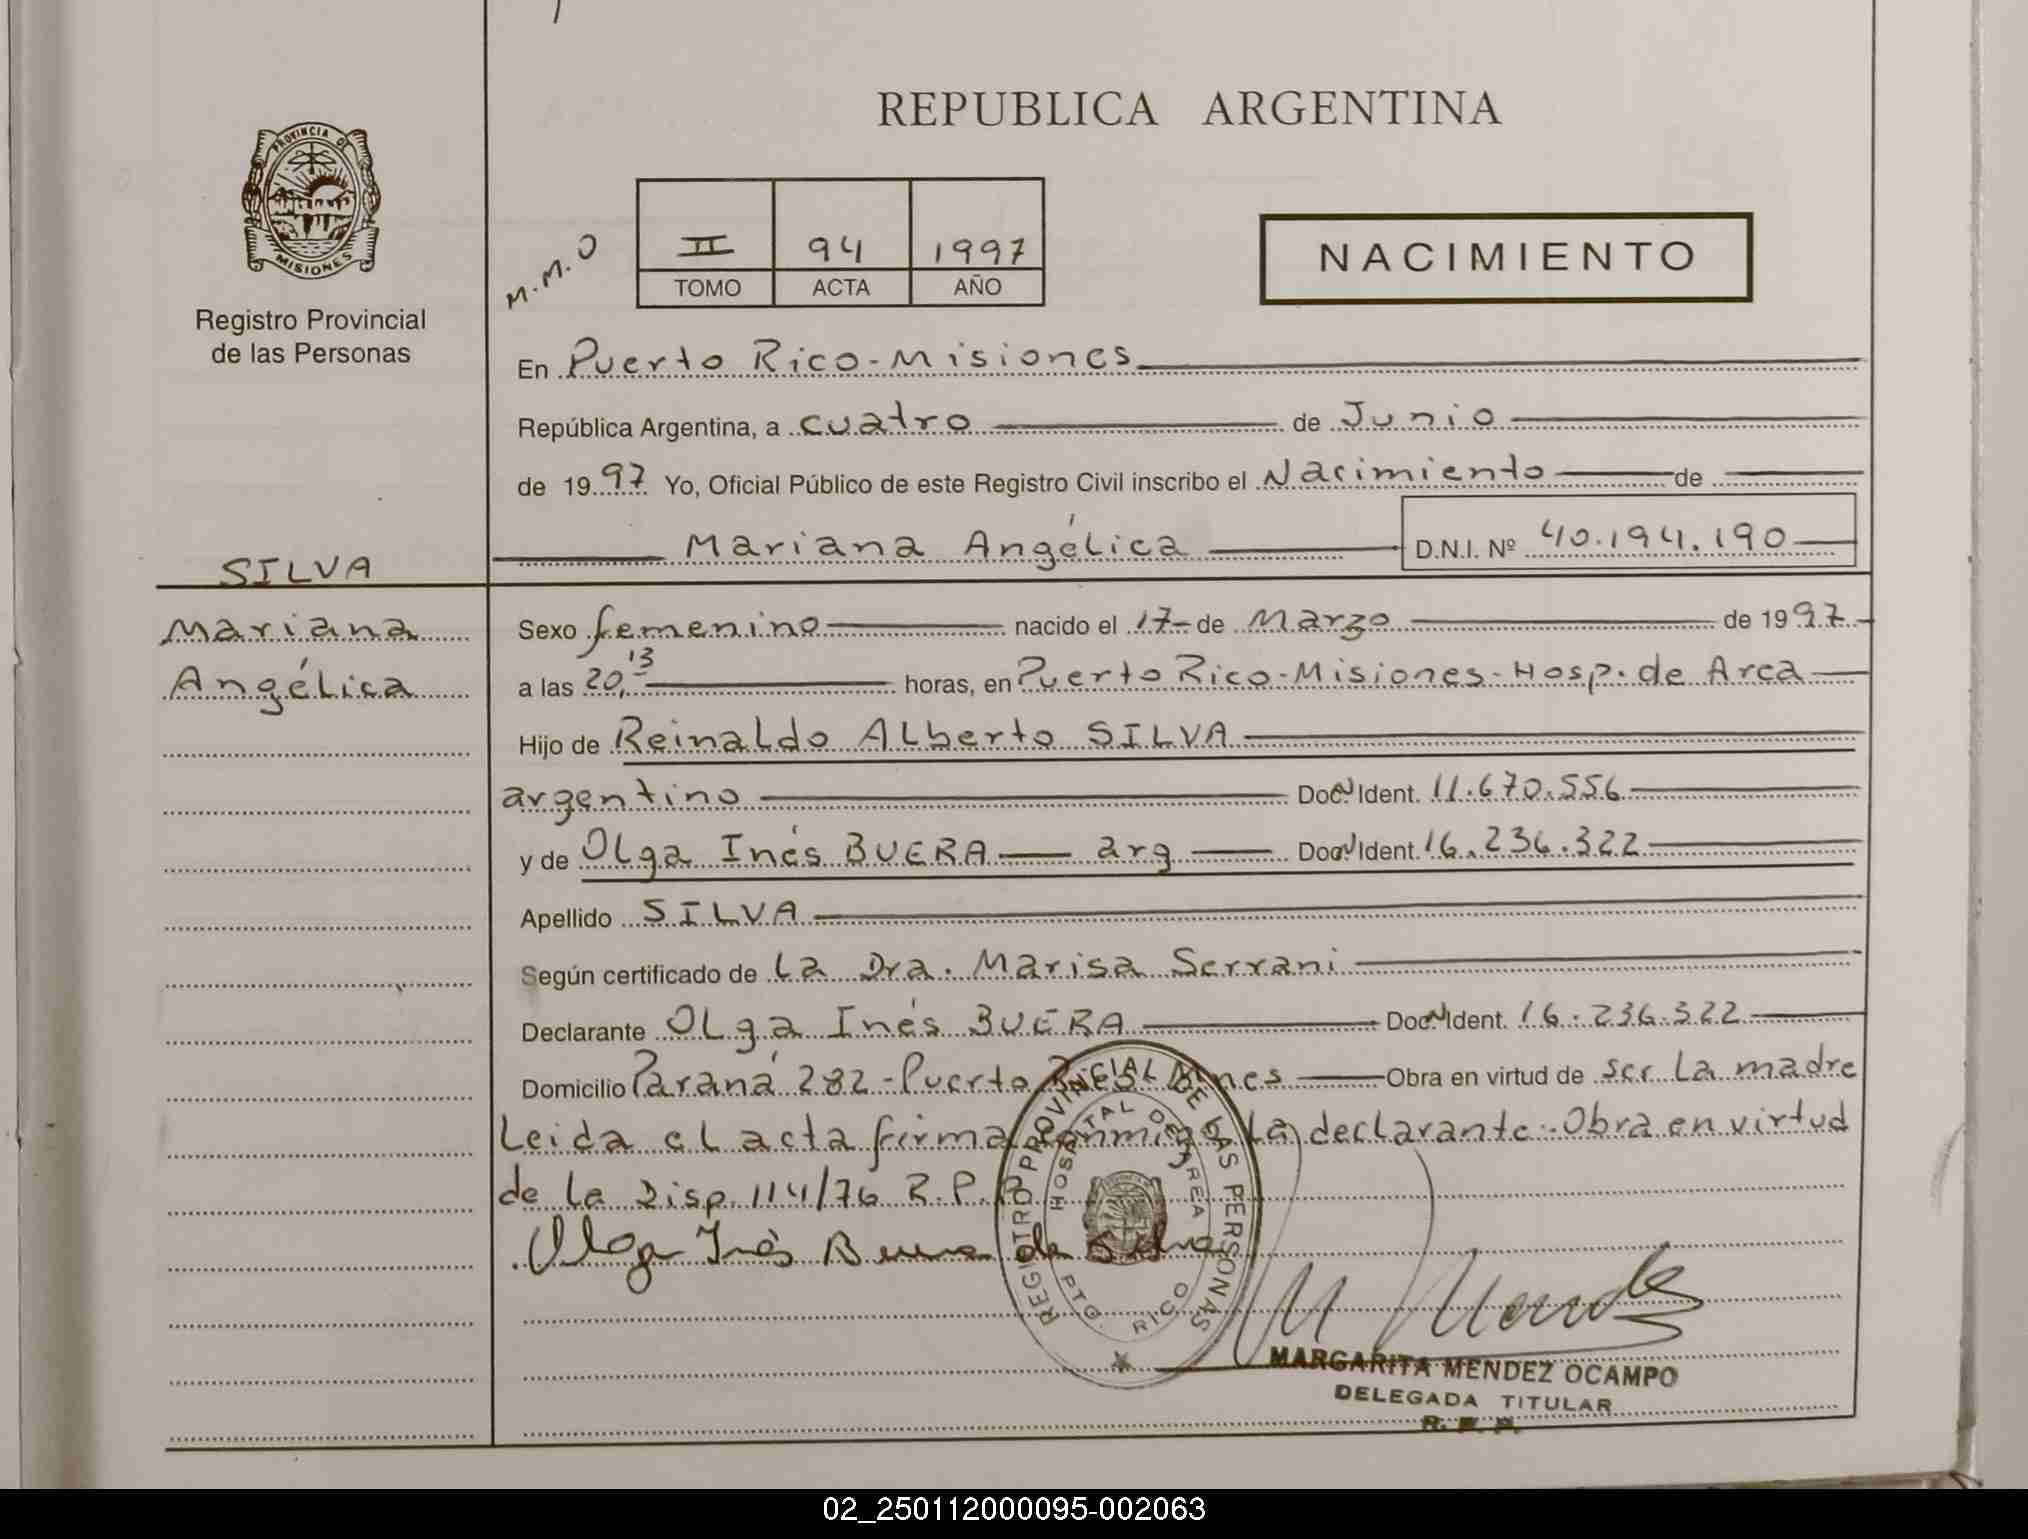 REPUBLICA ARGENTINA
PROVINCIA DE
MISIONES
Registro Provincial
de las Personas
M.M.O
II 94 1997
TOMO ACTA AÑO
NACIMIENTO
En Puerto Rico - Misiones
República Argentina, a cuatro de Junio
de 1997 Yo, Oficial Público de este Registro Civil inscribo el Nacimiento de
Mariana Angélica D.N.I. Nº 40.194.190
SILVA
Mariana
Angélica
Sexo femenino nacido el 17- de Marzo de 1997
a las 20,13 horas, en Puerto Rico - Misiones - Hosp. de Area
Hijo de Reinaldo Alberto SILVA
argentino Doc. N Ident. 11.670.556
y de Olga Inés BUERA arg Doc. N Ident. 16.236.322
Apellido SILVA
Según certificado de La Dra. Marisa Serrani
Declarante Olga Inés BUERA Doc. N Ident. 16.236.322
Domicilio Paraná 282 - Puerto Rico Mnes Obra en virtud de ser La madre
Leida el acta firma conmigo La declarante. Obra en virtud
de la Disp. 114/76 R.P.P.
Olga Inés Buera de Silva
REGISTRO PROVINCIAL DE LAS PERSONAS
HOSPITAL DE AREA
PTO. RICO
M Mendez
MARGARITA MENDEZ OCAMPO
DELEGADA TITULAR
R. P. P.
02_250112000095-002063